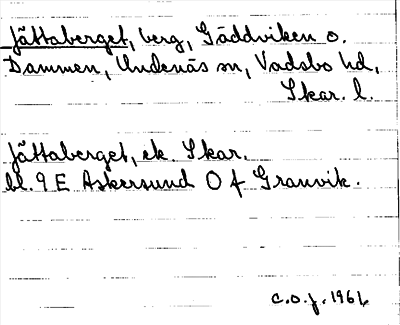 Jättaberget, berg, Gäddviken o.
Dammen, Undenäs sn, Vadsbo hd,
Skar. l.
Jättaberget, ek. Skar.
bl. 9 E Askersund O f Granvik.
C.O.J. 1961